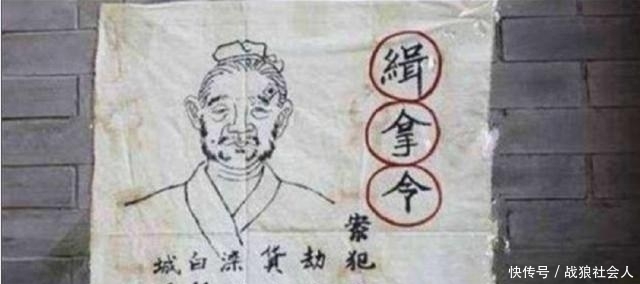 緝拿令
案犯
劫
貨
深
白
城
快传号 / 战狼社会人